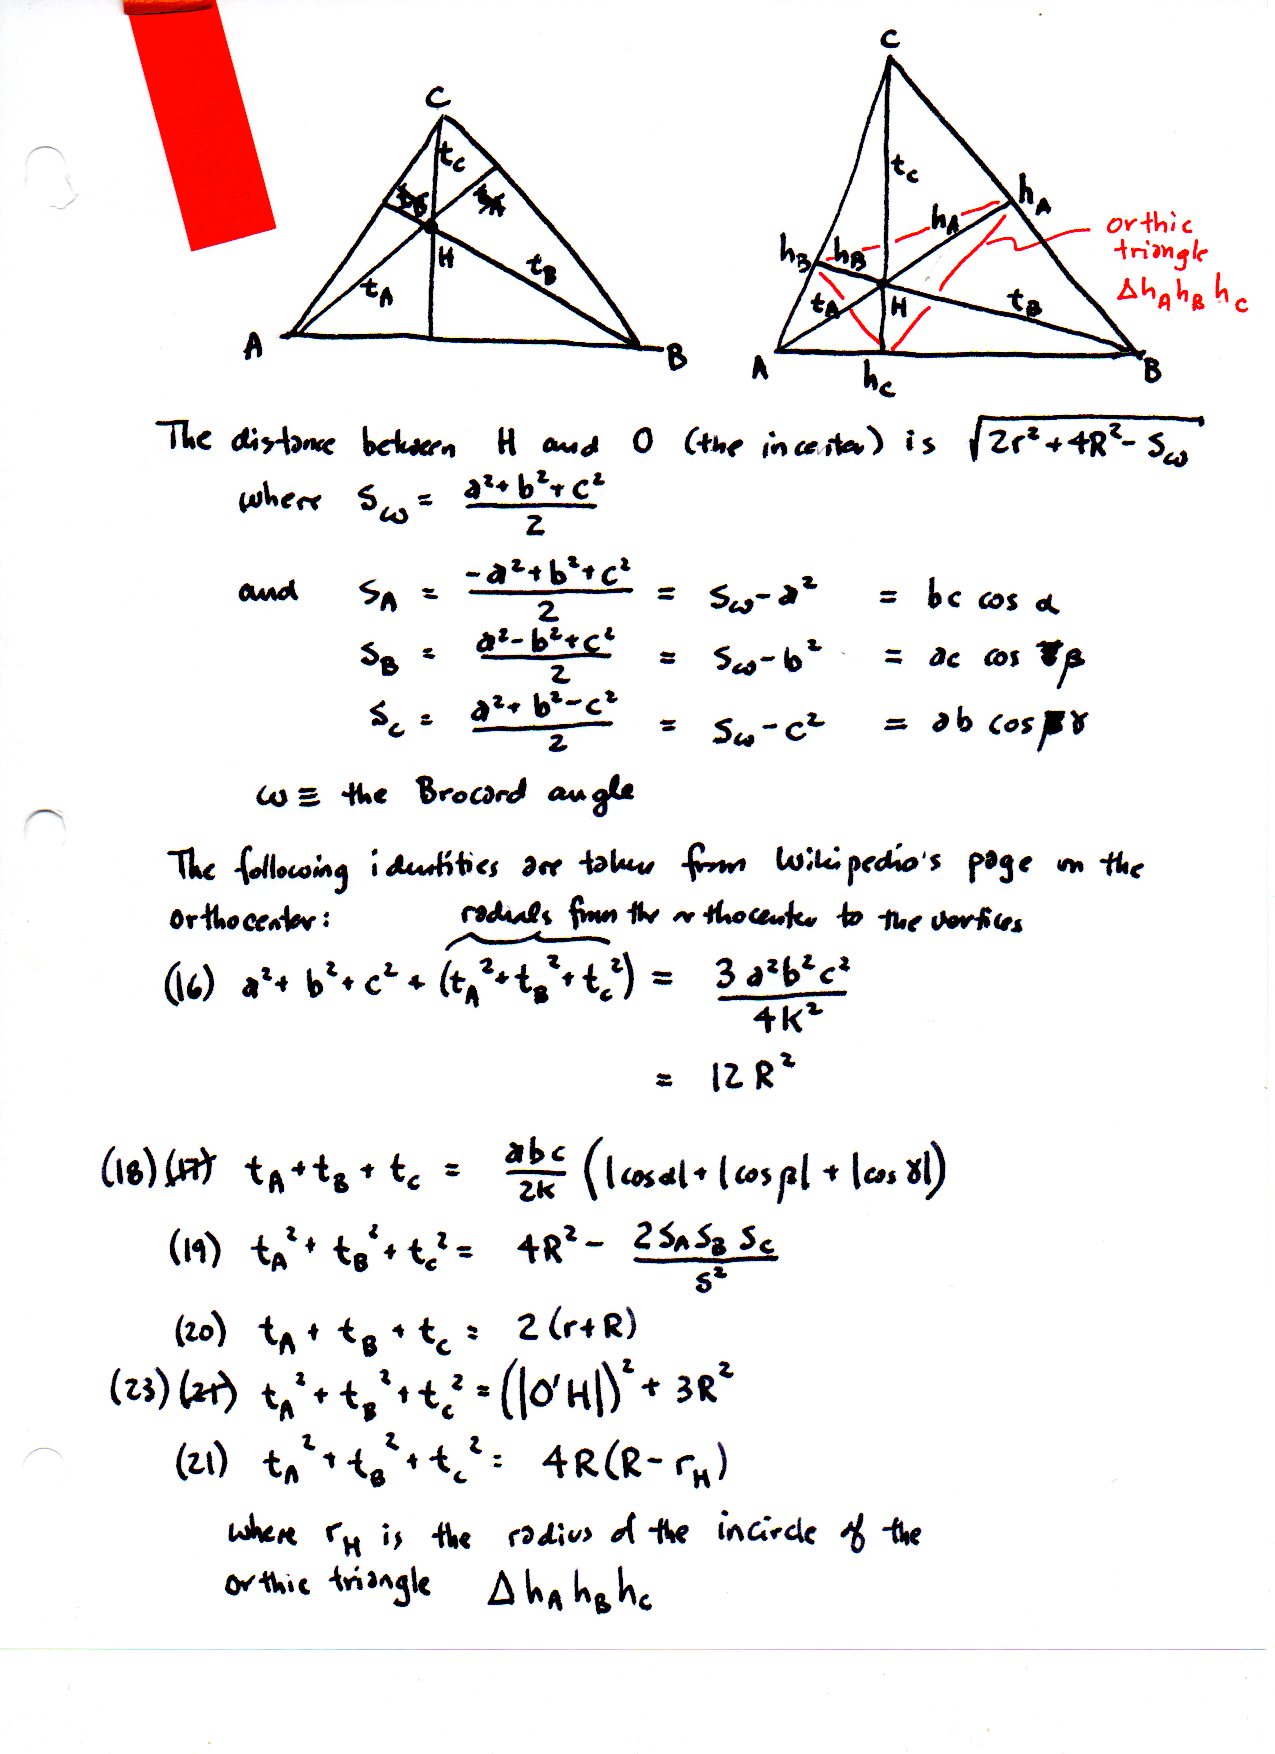 C
t_C
t_B
t_A
H
t_B
t_A
A
B
C
t_C
h_A
h_A
h_B
h_B
t_A
H
t_B
A
h_C
B
orthic
triangle
Δh_A h_B h_C
The distance between H and O (the incenter) is √(2r² + 4R² - S_ω)
where S_ω = (a² + b² + c²)/2
and S_A = (-a² + b² + c²)/2 = S_ω - a² = bc cos α
S_B = (a² - b² + c²)/2 = S_ω - b² = ac cos β
S_C = (a² + b² - c²)/2 = S_ω - c² = ab cos γ
ω ≡ the Brocard angle
The following identities are taken from Wikipedia's page on the
orthocenter: radials from the orthocenter to the vertices
(16) a² + b² + c² + (t_A² + t_B² + t_C²) = 3a²b²c²/4K²
= 12R²
(18) (17) t_A + t_B + t_C = abc/2K (|cos α| + |cos β| + |cos γ|)
(19) t_A² + t_B² + t_C² = 4R² - 2S_A S_B S_C/S²
(20) t_A + t_B + t_C = 2(r + R)
(23) (21) t_A² + t_B² + t_C² = (|O'H|)² + 3R²
(21) t_A² + t_B² + t_C² = 4R(R - r_H)
where r_H is the radius of the incircle of the
orthic triangle Δh_A h_B h_C